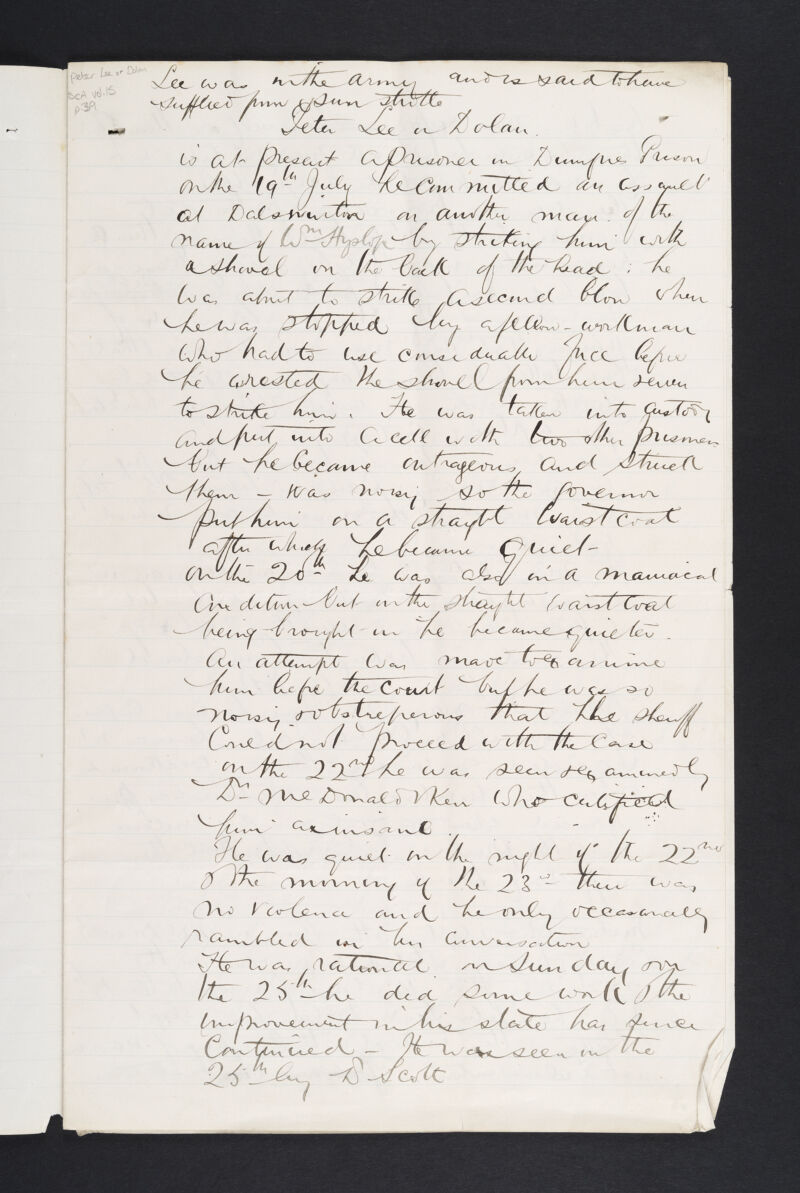 Peter Lee or Dolan
DCA vol. 15
p 39
Lee was in the army and is said to have
suffered from sun stroke
Peter Lee or Dolan.
is at present a prisoner in Dumfries Prison
on the 19th July he committed an assault
at Dalswinton on another man of the
name of Wm Hyslop by striking him with
a shovel on the back of the head : he
was about to strike a second blow when
he was stopped by a fellow-workman
who had to use considerable force before
he wrested the shovel from him
to strike him. He was taken into custody
and put into a cell with two other prisoners
but he became outrageous and struck
them – was noisy so the governor
put him on a straight waistcoat
after which he became quiet –
on the 20th he was also in a maniacal
condition but on the straight waistcoat
being brought in he became quieter.
An attempt was made to examine
him before the court but he was so
noisy & obstreperous that the sheriff
could not proceed with the case
on the 22nd he was seen & examined by
Drs McDonald & Kerr who certified
him as insane.
He was quiet on the night of the 22nd
& the morning of the 23rd – there was
no violence and he only occasionally
rambled in his conversation
He was rational on Sunday & on
the 25th he did some work & the
improvement in his state has since
continued – He was seen on the
25th by Dr Scott